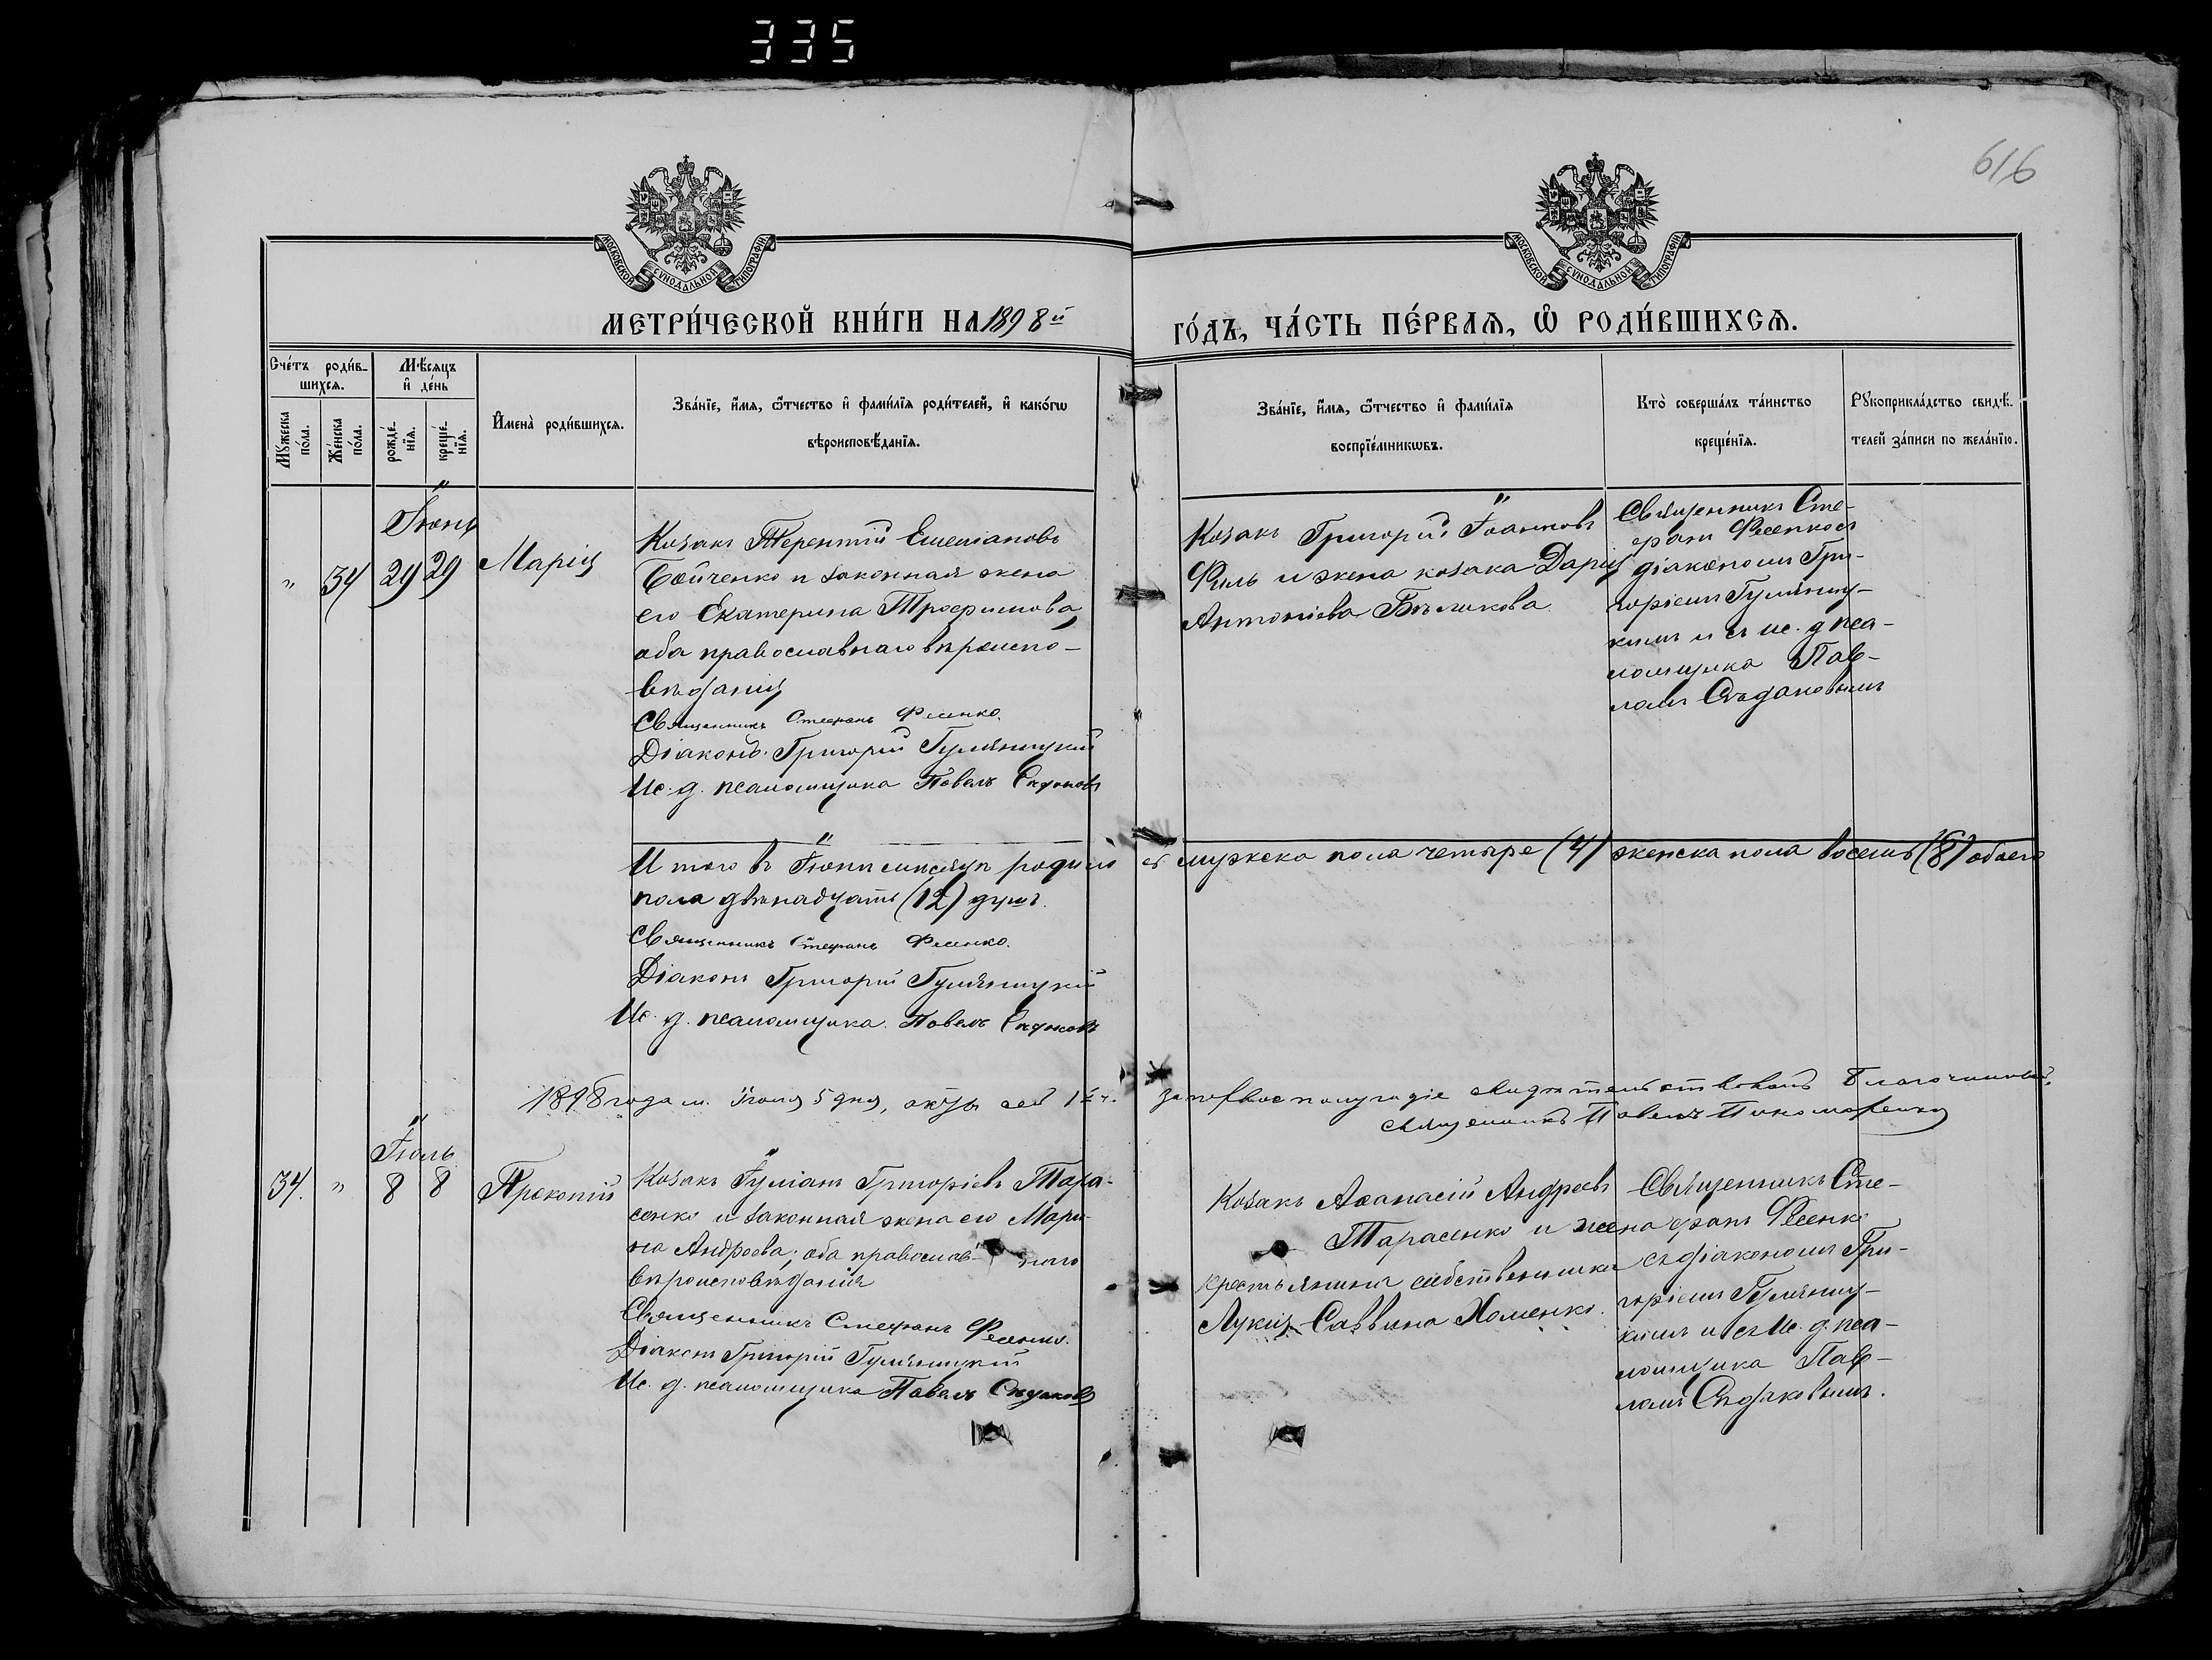 335
616
МОСКОВСКОЙ СУНОДАЛЬНОЙ ТИПОГРАФІИ
МОСКОВСКОЙ СУНОДАЛЬНОЙ ТИПОГРАФІИ
МЕТРИ́ЧЕСКОЙ КНИ́ГИ НА 1898й
ГО́ДЪ, ЧА́СТЬ ПЕ́РВАѦ, Ѽ РОДИ́ВШИХСѦ.
Сче́тъ роди́в-
шихсѧ.
Мꙋ́жеска по́ла.
Же́нска по́ла.
Мѣ́сѧцъ
и҆ де́нь
рожде́-
нїѧ.
креще́-
нїѧ.
И҆мена̀ роди́вшихсѧ.
Зва́нїе, и҆́мѧ, ѻ҆́тчество и҆ фами́лїѧ роди́телей, и҆ како́гѡ
вѣроисповѣ́данїѧ.
Зва́нїе, и҆́мѧ, ѻ҆́тчество и҆ фами́лїѧ
воспрїе́мникѡвъ.
Кто̀ соверша́лъ та́инство
креще́нїѧ.
Рꙋкоприкла́дство свидѣ́-
телей за́писи по жела́нїю.
Іюнь
" 34 29 29 Марія
Козакъ Терентій Емеліановъ
Бойченко и законная жена
его Екатерина Трофимова,
оба православнаго вѣроиспо-
вѣданія
Священникъ Стефанъ Фесенко.
Діаконъ Григорій Гуляницкій
Ис. д. псаломщика Павелъ Сѣдаковъ
Козакъ Григорій Іоанновъ
Филь и жена козака Дарія
Антоніева Бѣликова
Священникъ Сте-
фанъ Фесенко съ
діакономъ Гри-
горіемъ Гуляниц-
кимъ и съ ис. д. пса-
ломщика Пав-
ломъ Сѣдаковымъ
Итого въ Іюнѣ мѣсяцѣ родило сь мужеска пола четыре (4) женска пола восемь (8) обоего
пола двѣнадцать (12) душъ.
Священникъ Стефанъ Фесенко.
Діаконъ Григорій Гуляницкій
Ис. д. псаломщика Павелъ Сѣдаковъ
1898 года м. Іюля 5 дня, за первое полугодіе свидѣтельствовалъ Благочинный,
священникъ Павелъ
Іюль
34. " 8 8 Прокопій
Козакъ Іуліанъ Григоріевъ Тара-
сенко и законная жена его Мари-
на Андреева; оба православ- наго
вѣроисповѣданія
Священникъ Стефанъ Фесенко.
Діаконъ Григорій Гуляницкій
Ис. д. псаломщика Павелъ Сѣдаковъ
Козакъ Аѳанасій Андреевъ
Тарасенко и жена
крестьянина собственника
Лукія Саввина Хоменко.
Священникъ Сте-
фанъ Фесенко
съ діакономъ Гри-
горіемъ Гуляниц-
кимъ и съ Ис. д. пса-
ломщика Пав-
ломъ Сѣдаковымъ.